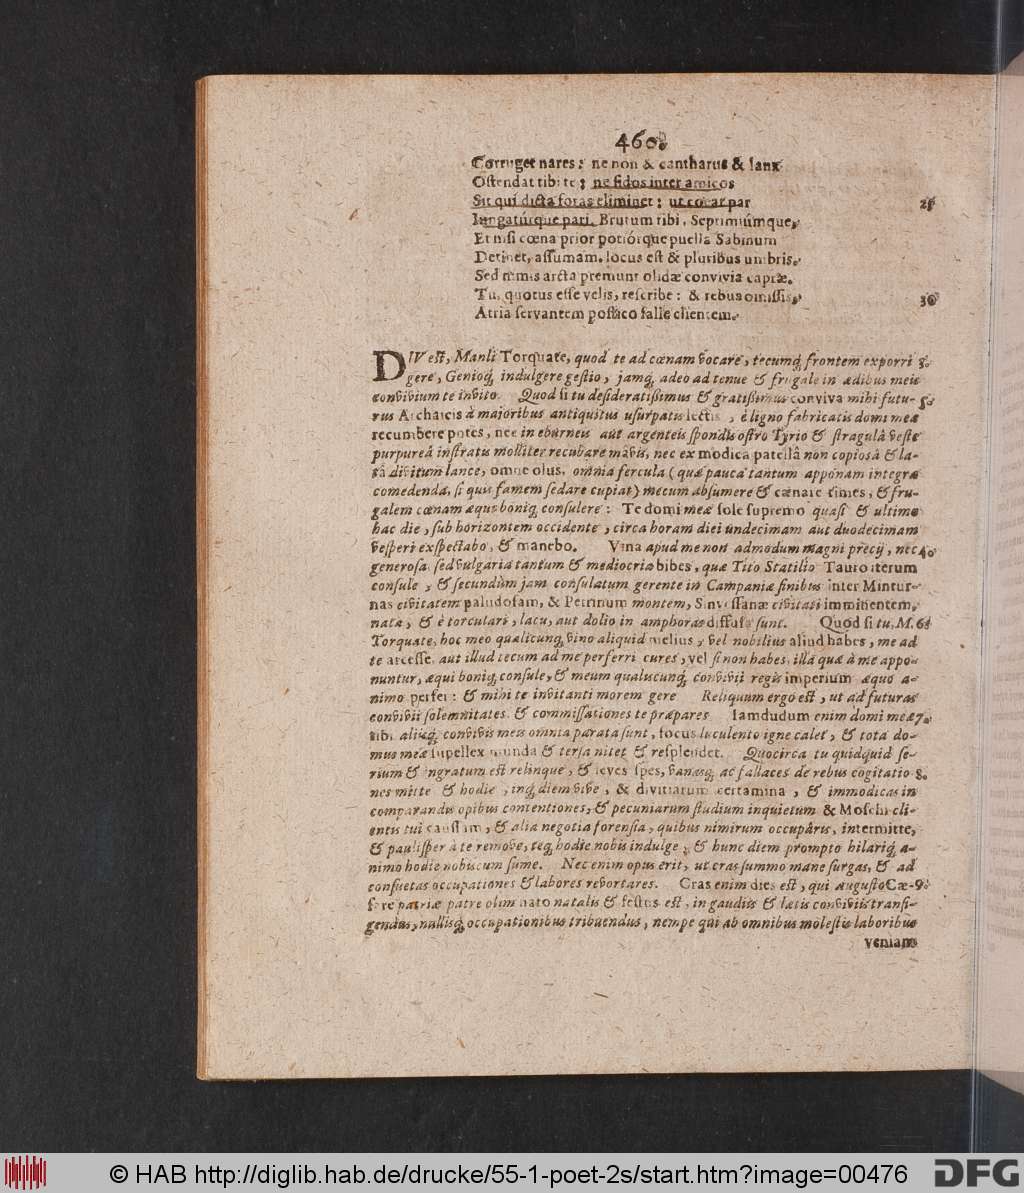 460.
Corruget nares: ne non & cantharus & lanx
Ostendat tibi te: ne fidos inter amicos
Sit qui dicta foras eliminet: ut coeat par 25
Iungatúrque pari. Brutum tibi, Septimiúmque,
Et nisi cœna prior potiórque puella Sabinum
Detinet, assumam. locus est & pluribus umbris.
Sed nimis arcta premunt olidæ convivia capræ.
Tu, quotus esse velis, rescribe: & rebus omissis, 30
Atria servantem postico falle clientem.
DIV est, Manli Torquate, quod te ad cœnam vocare, tecumq́; frontem exporri 3.
gere, Genioq́; indulgere gestio, jamq́; adeo ad tenue & frugale in ædibus meis
convivium te invito. Quod si tu desideratissimus & gratissimus conviva mihi futu-
rus Archaicis à majoribus antiquitus usurpatis lectis, è ligno fabricatis domi meæ
recumbere potes, nec in eburneis aut argenteis spondis ostro Tyrio & stragulâ veste
purpureâ instratis molliter recubare mavis, nec ex modica patellâ non copiosâ & la-
tâ divitum lance, omne olus, omnia fercula (quæ pauca tantum apponam integra
comedenda, si quis famem sedare cupiat) mecum absumere & cœnare times, & fru-
galem cœnam æqui boniq́; consulere: Te domi meæ sole supremo quasi & ultimo
hac die, sub horizontem occidente, circa horam diei undecimam aut duodecimam
vesperi exspectabo, & manebo. Vina apud me non admodum magni precij, nec 4.
generosa, sed vulgaria tantum & mediocria bibes, quæ Tito Statilio Tauro iterum
consule, & secundùm jam consulatum gerente in Campaniæ finibus inter Mintur-
nas civitatem paludosam, & Petrinum montem, Sinuessanæ civitati imminentem,
nata, & è torculari, lacu, aut dolio in amphoras diffusa sunt. Quòd si tu, M. 6.
Torquate, hoc meo qualicunq́; vino aliquid melius, vel nobilius aliud habes, me ad
te arcesse, aut illud tecum ad me perferri cures, vel si non habes, illa quæ à me appo-
nuntur, æqui boniq́; consule, & meum qualucunq́; convivii regis imperium æquo a-
nimo perfer: & mihi te invitanti morem gere Reliquum ergo est, ut ad futuras
convivii solemnitates & commissationes te præpares Iamdudum enim domi meæ 7.
tibi aliisq́; convivis meis omnia parata sunt, focus luculento igne calet, & tota do-
mus meæ supellex munda & tersa nitet & resplendet. Quocirca tu quidquid se-
rium & ingratum est relinque, & leves spes, vanasq́; ac fallaces de rebus cogitatio 8.
nes mitte & hodie, inq́; diem vive, & divitiarum certamina, & immodicas in
comparandis opibus contentiones, & pecuniarum studium inquietum & Moschi cli-
entis tui caussam, & alia negotia forensia, quibus nimirum occupâris, intermitte,
& paulisper à te remove, teq́; hodie nobis indulge, & hunc diem prompto hilariq́; a-
nimo hodie nobiscum sume. Nec enim opus erit, ut cras summo mane surgas, & ad
consuetas occupationes & labores revortares. Cras enim dies est, qui Augusto Cæ- 9.
sare patriæ patre olim nato natalis & festus est, in gaudiis & lætis conviviis transi-
gendus, nullisq́; occupationibus tribuendus, nempe qui ab omnibus molestis laboribus
veniam
© HAB http://diglib.hab.de/drucke/55-1-poet-2s/start.htm?image=00476
DFG